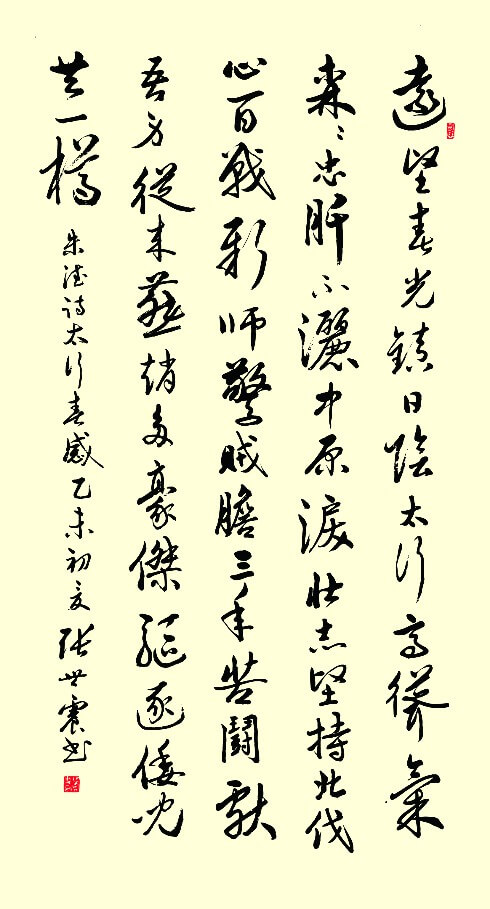 遠望春光鎮日陰太行高聳氣
森々忠肝不灑中原淚壯志堅持北伐
心百戰新師驚賊膽三年苦鬪獻
吾身從來燕趙多豪傑驅逐倭兒
共一樽
朱德詩太行春感乙未初夏張世震书